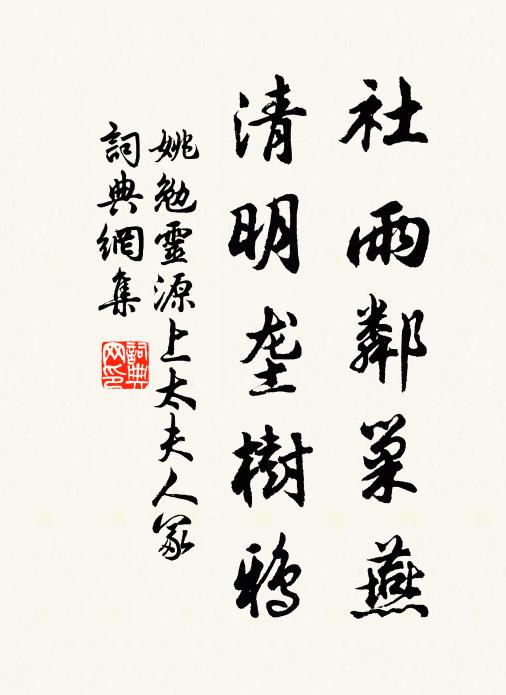 社雨鄰巢燕
清明垄樹鴉
姚勉靈源上太夫人冢
詞典網集
詞典网印